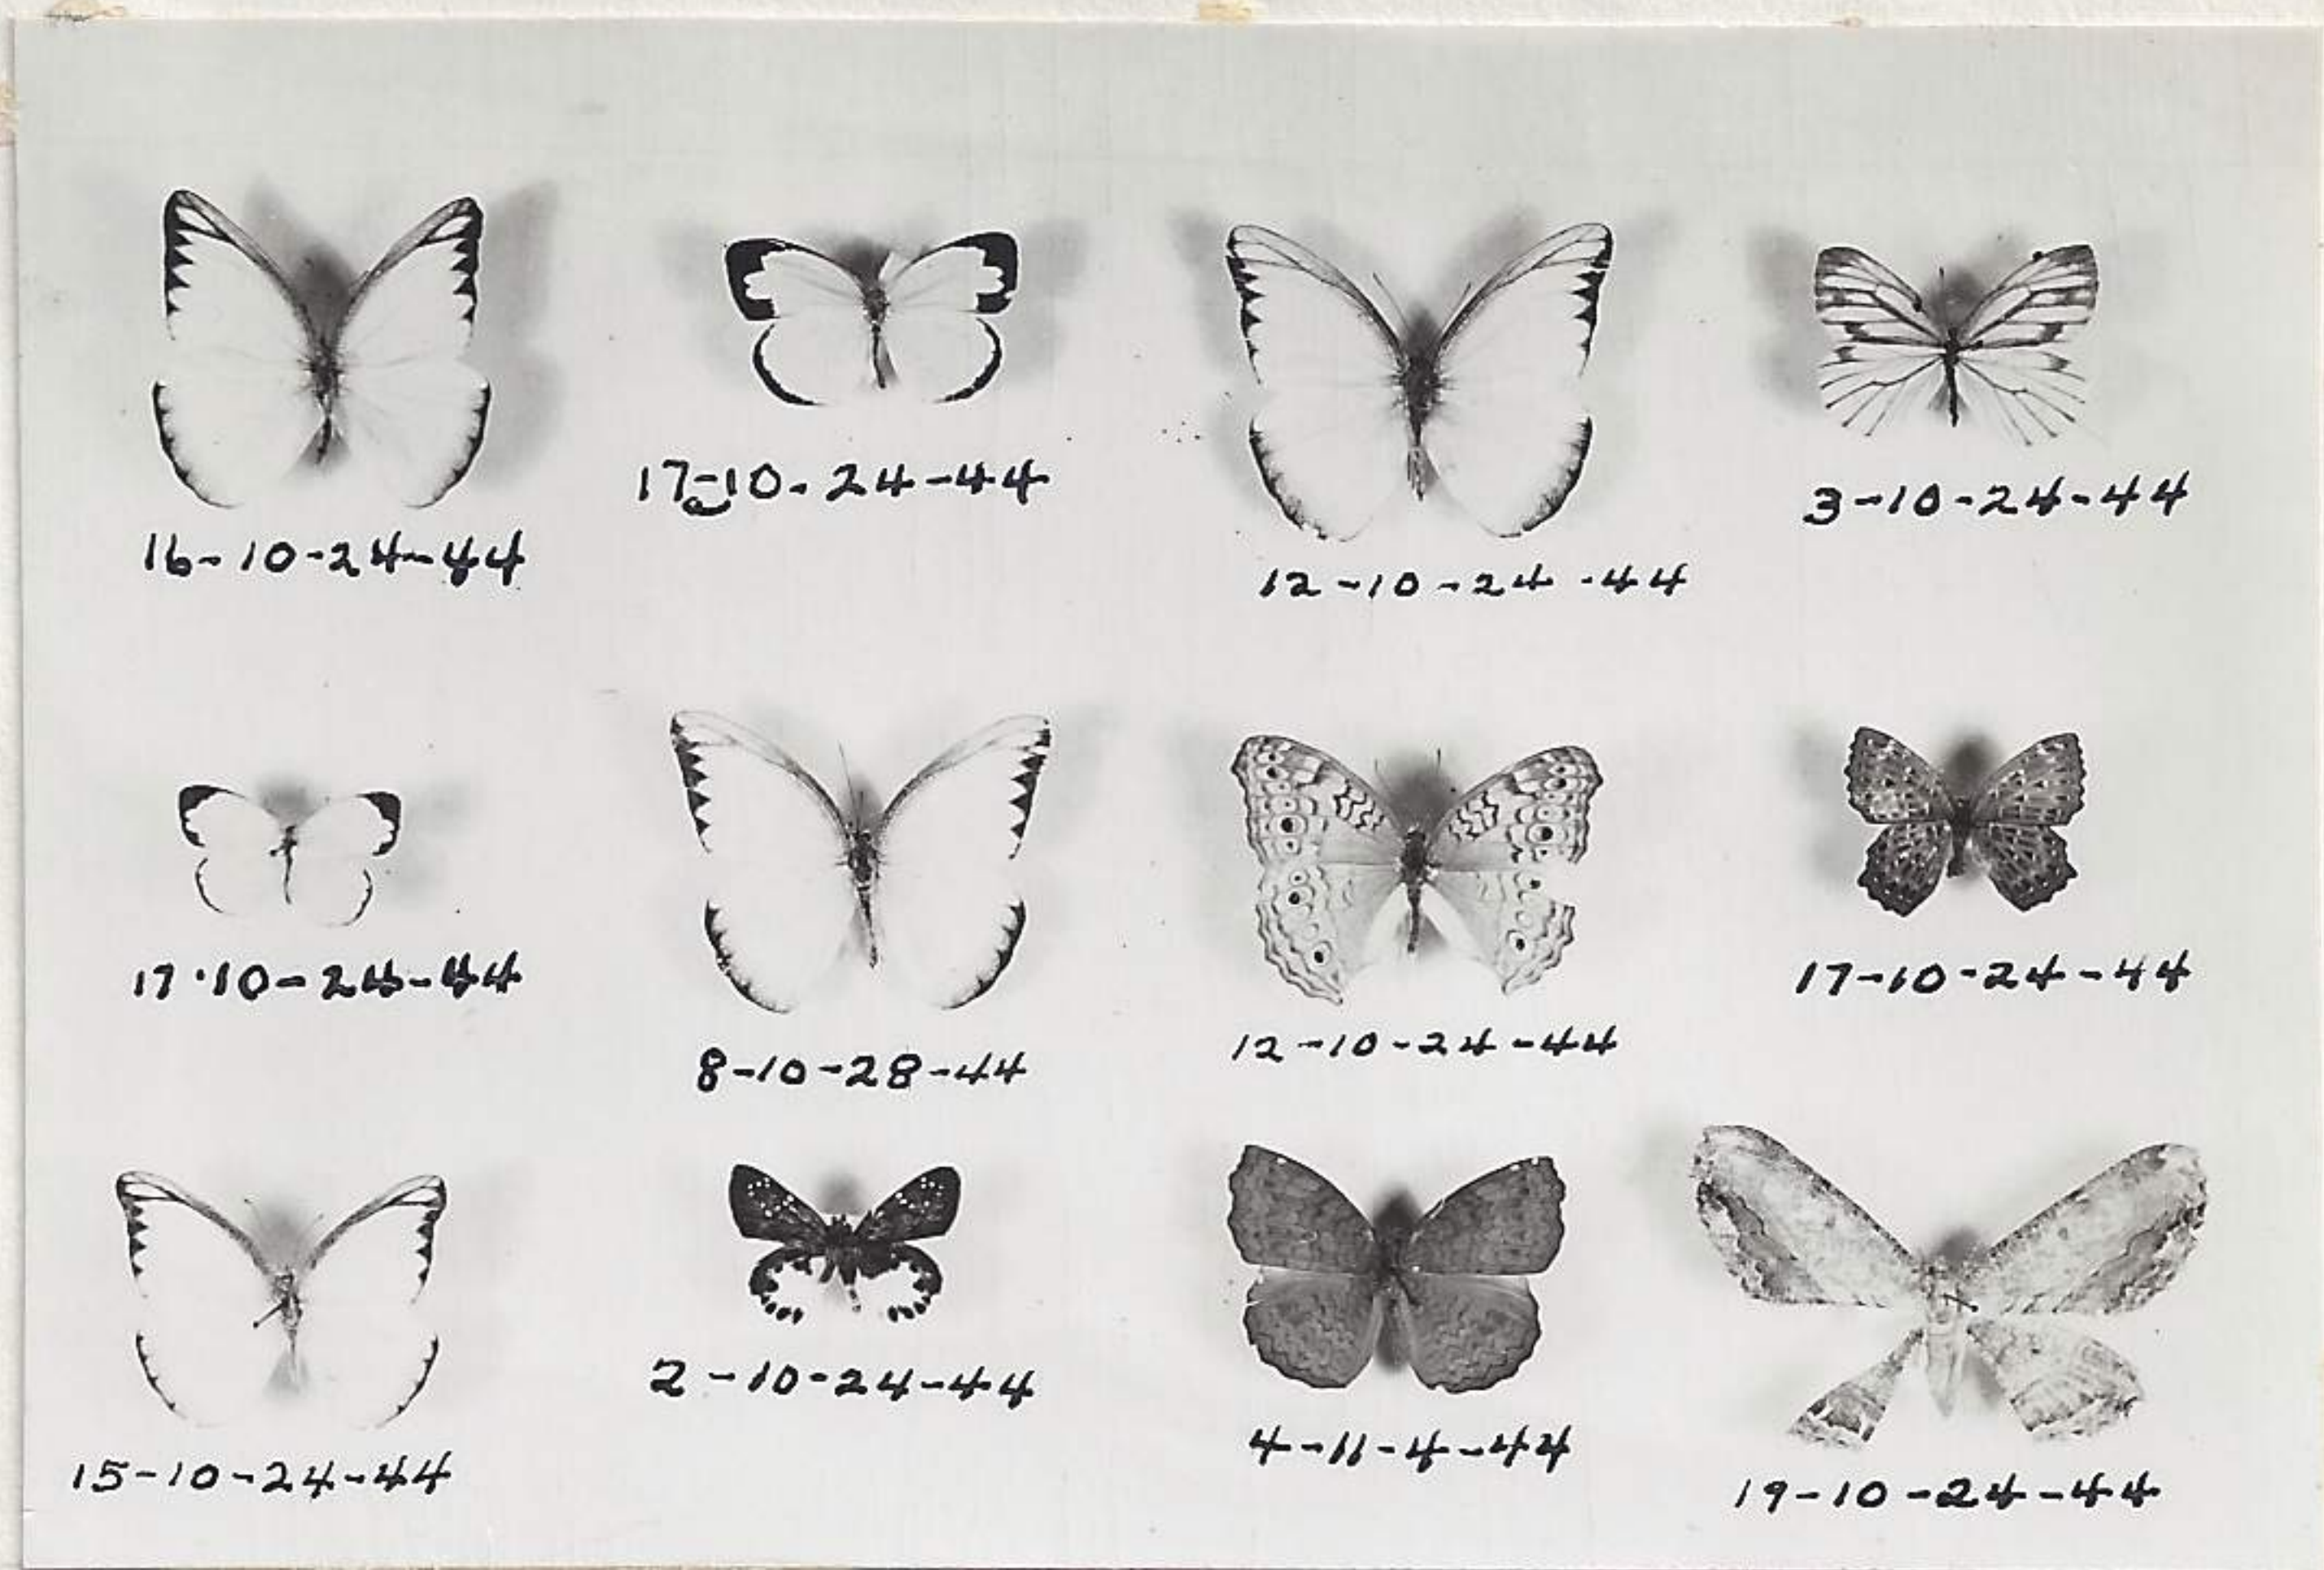 16-10-24-44
17-10-24-44
12-10-24-44
3-10-24-44
17-10-24-44
8-10-28-44
12-10-24-44
17-10-24-44
15-10-24-44
2-10-24-44
4-11-4-44
19-10-24-44